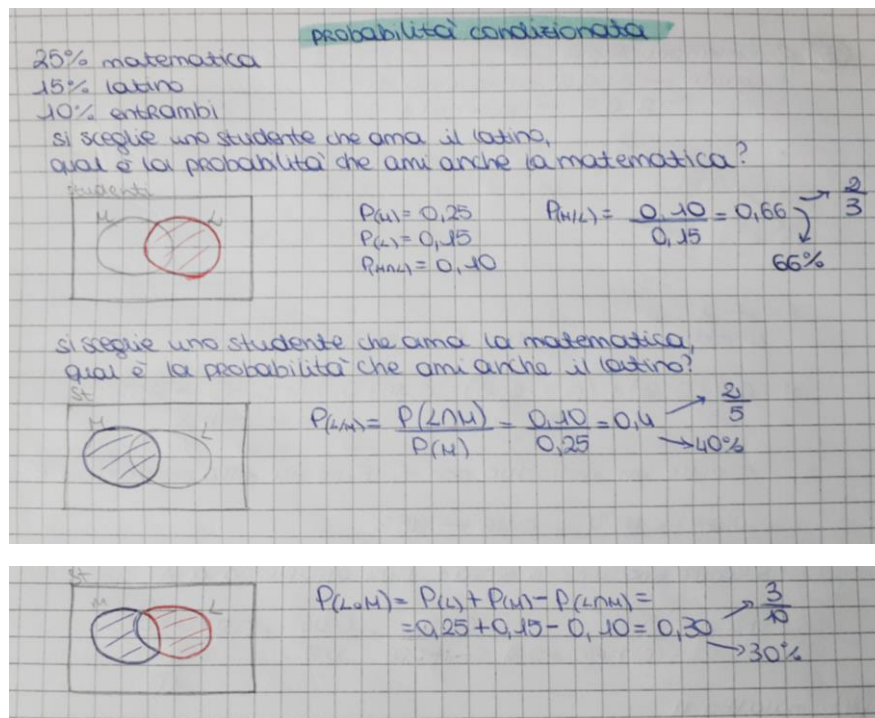 probabilità condizionata
25% matematica
15% latino
10% entrambi
si sceglie uno studente che ama il latino,
qual è la probabilità che ami anche la matematica?
studenti
M L
P(M) = 0,25
P(L) = 0,15
P(M∩L) = 0,10
P(M/L) = 0,10 / 0,15 = 0,66 → 2/3
66%
si sceglie uno studente che ama la matematica,
qual è la probabilità che ami anche il latino?
St
M L
P(L/M) = P(L∩M) / P(M) = 0,10 / 0,25 = 0,4 → 2/5
→ 40%
St
M L
P(L o M) = P(L) + P(M) - P(L∩M) =
= 0,25 + 0,15 - 0,10 = 0,30 → 3/10
→ 30%